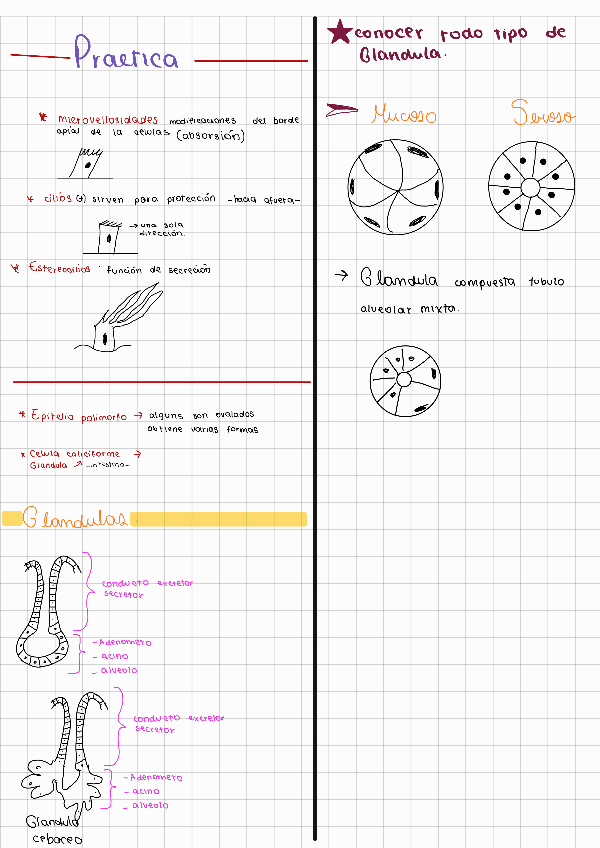 Practica
* microvellosidades modificaciones del borde
apial de la celulas (absorsión)
* cilios (9) sirven para protección -hacia afuera-
→ una sola
dirección.
* Estereocilios : función de secreción
* Epitelio polimorfo → alguns son ovalados
obtiene varias formas
* Celula caliciforme →
Glandula ↗ -intestino-
Glandulas
conducto excretor
secretor
-Adenomero
- acino
- alveolo
conducto excretor
secretor
-Adenomero
- acino
- alveolo
Glandula
cebaceo
★ conocer todo tipo de
Glandula.
Mucoso Seroso
→ Glandula compuesta tubulo
alveolar mixta.